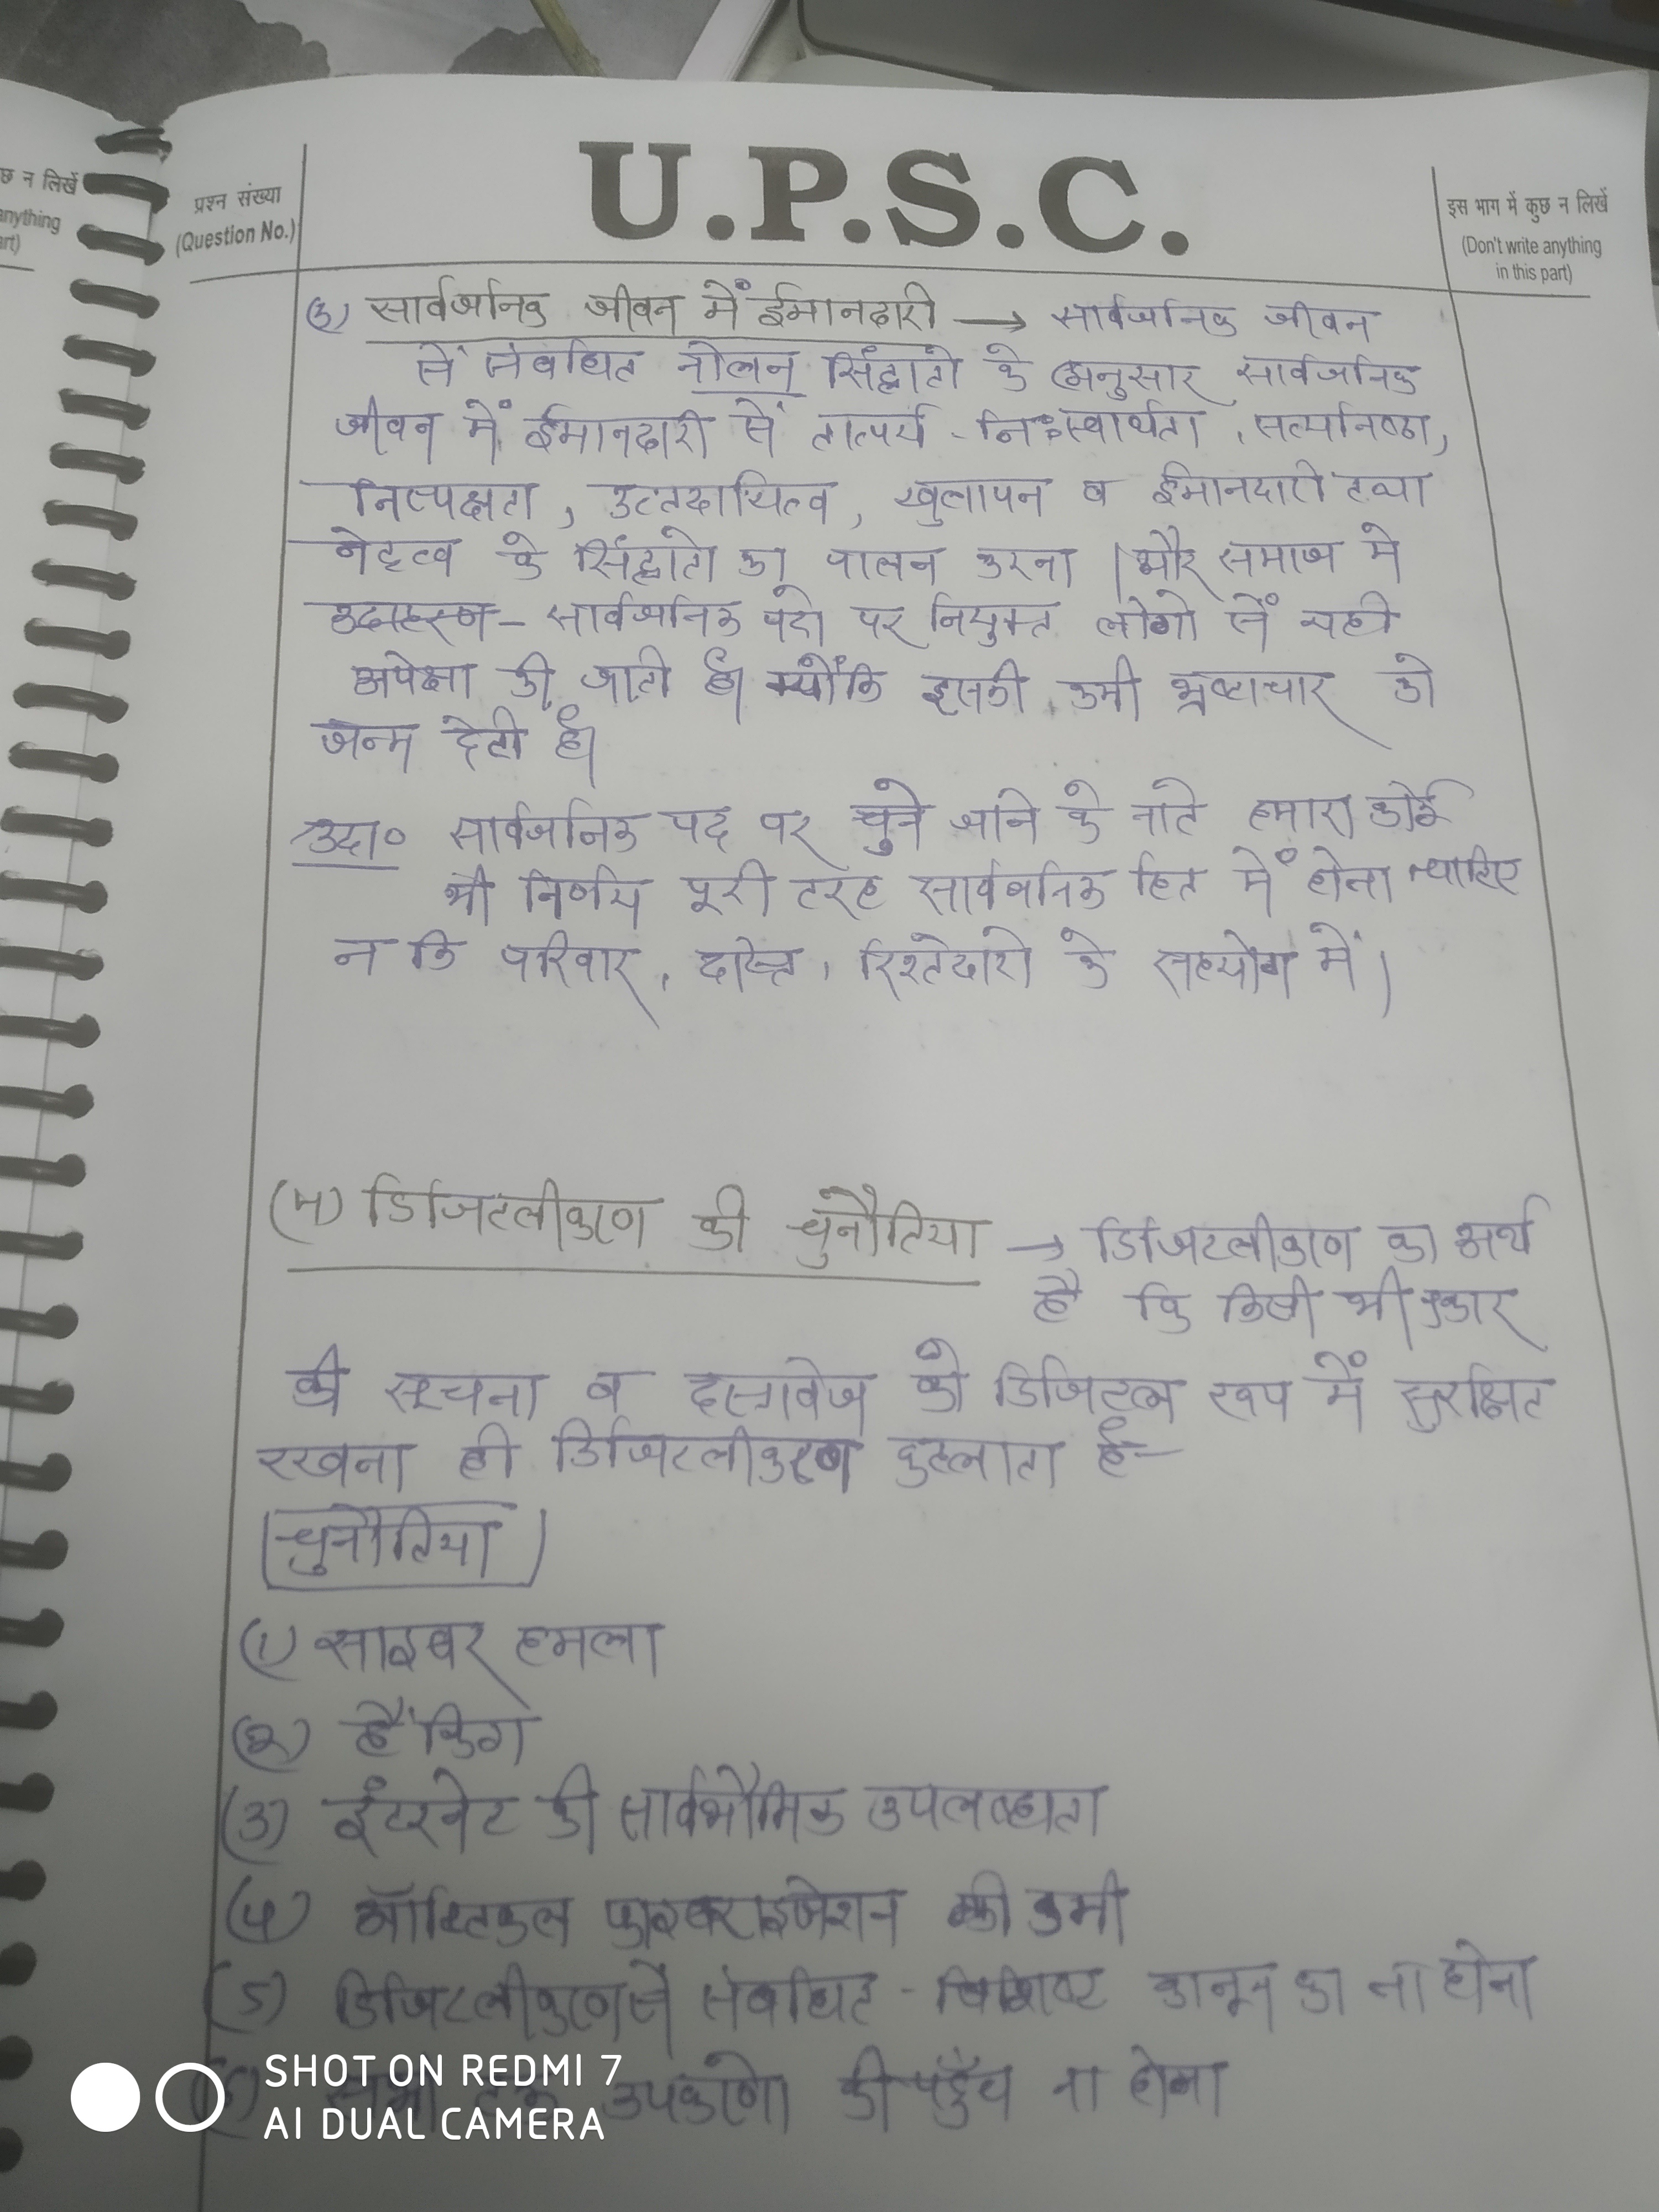 छ न लिखें
anything
art)
प्रश्न संख्या
(Question No.)
U.P.S.C.
इस भाग में कुछ न लिखें
(Don't write anything
in this part)
(3) सार्वजनिक जीवन में ईमानदारी → सार्वजनिक जीवन
से संबंधित नोलन सिद्धांतो के अनुसार सार्वजनिक
जीवन में ईमानदारी से तात्पर्य - निःस्वार्थता, सत्यनिष्ठा,
निष्पक्षता, उत्तदायित्व, खुलापन व ईमानदारी तथा
नेतृत्व के सिद्धांतो का पालन करना । और समाज मे
उदाहरण - सार्वजनिक पदो पर नियुक्त लोगो से यही
अपेक्षा की जाती है। क्योंकि इसकी कमी भ्रष्टाचार को
जन्म देती है।
उदा० सार्वजनिक पद पर चुने जाने के नाते हमारा कोई
भी निर्णय पूरी तरह सार्वजनिक हित में होना चाहिए
न कि परिवार, दोस्त, रिश्तेदारो के सहयोग में।
(4) डिजिटलीकरण की चुनौतिया → डिजिटलीकरण का अर्थ
है कि किसी भी प्रकार
की सूचना व दस्तावेज को डिजिटल रूप में सुरक्षित
रखना ही डिजिटलीकरण कहलाता है-
चुनौतिया
(1) साइबर हमला
(2) हैकिंग
(3) इंटरनेट की सार्वभौमिक उपलब्धता
(4) ऑप्टिकल फाइबराइजेशन की कमी
(5) डिजिटलीकरण से संबंधित - विशिष्ट कानून का ना होना
उपकरणो की पहुँच ना होना
SHOT ON REDMI 7
AI DUAL CAMERA